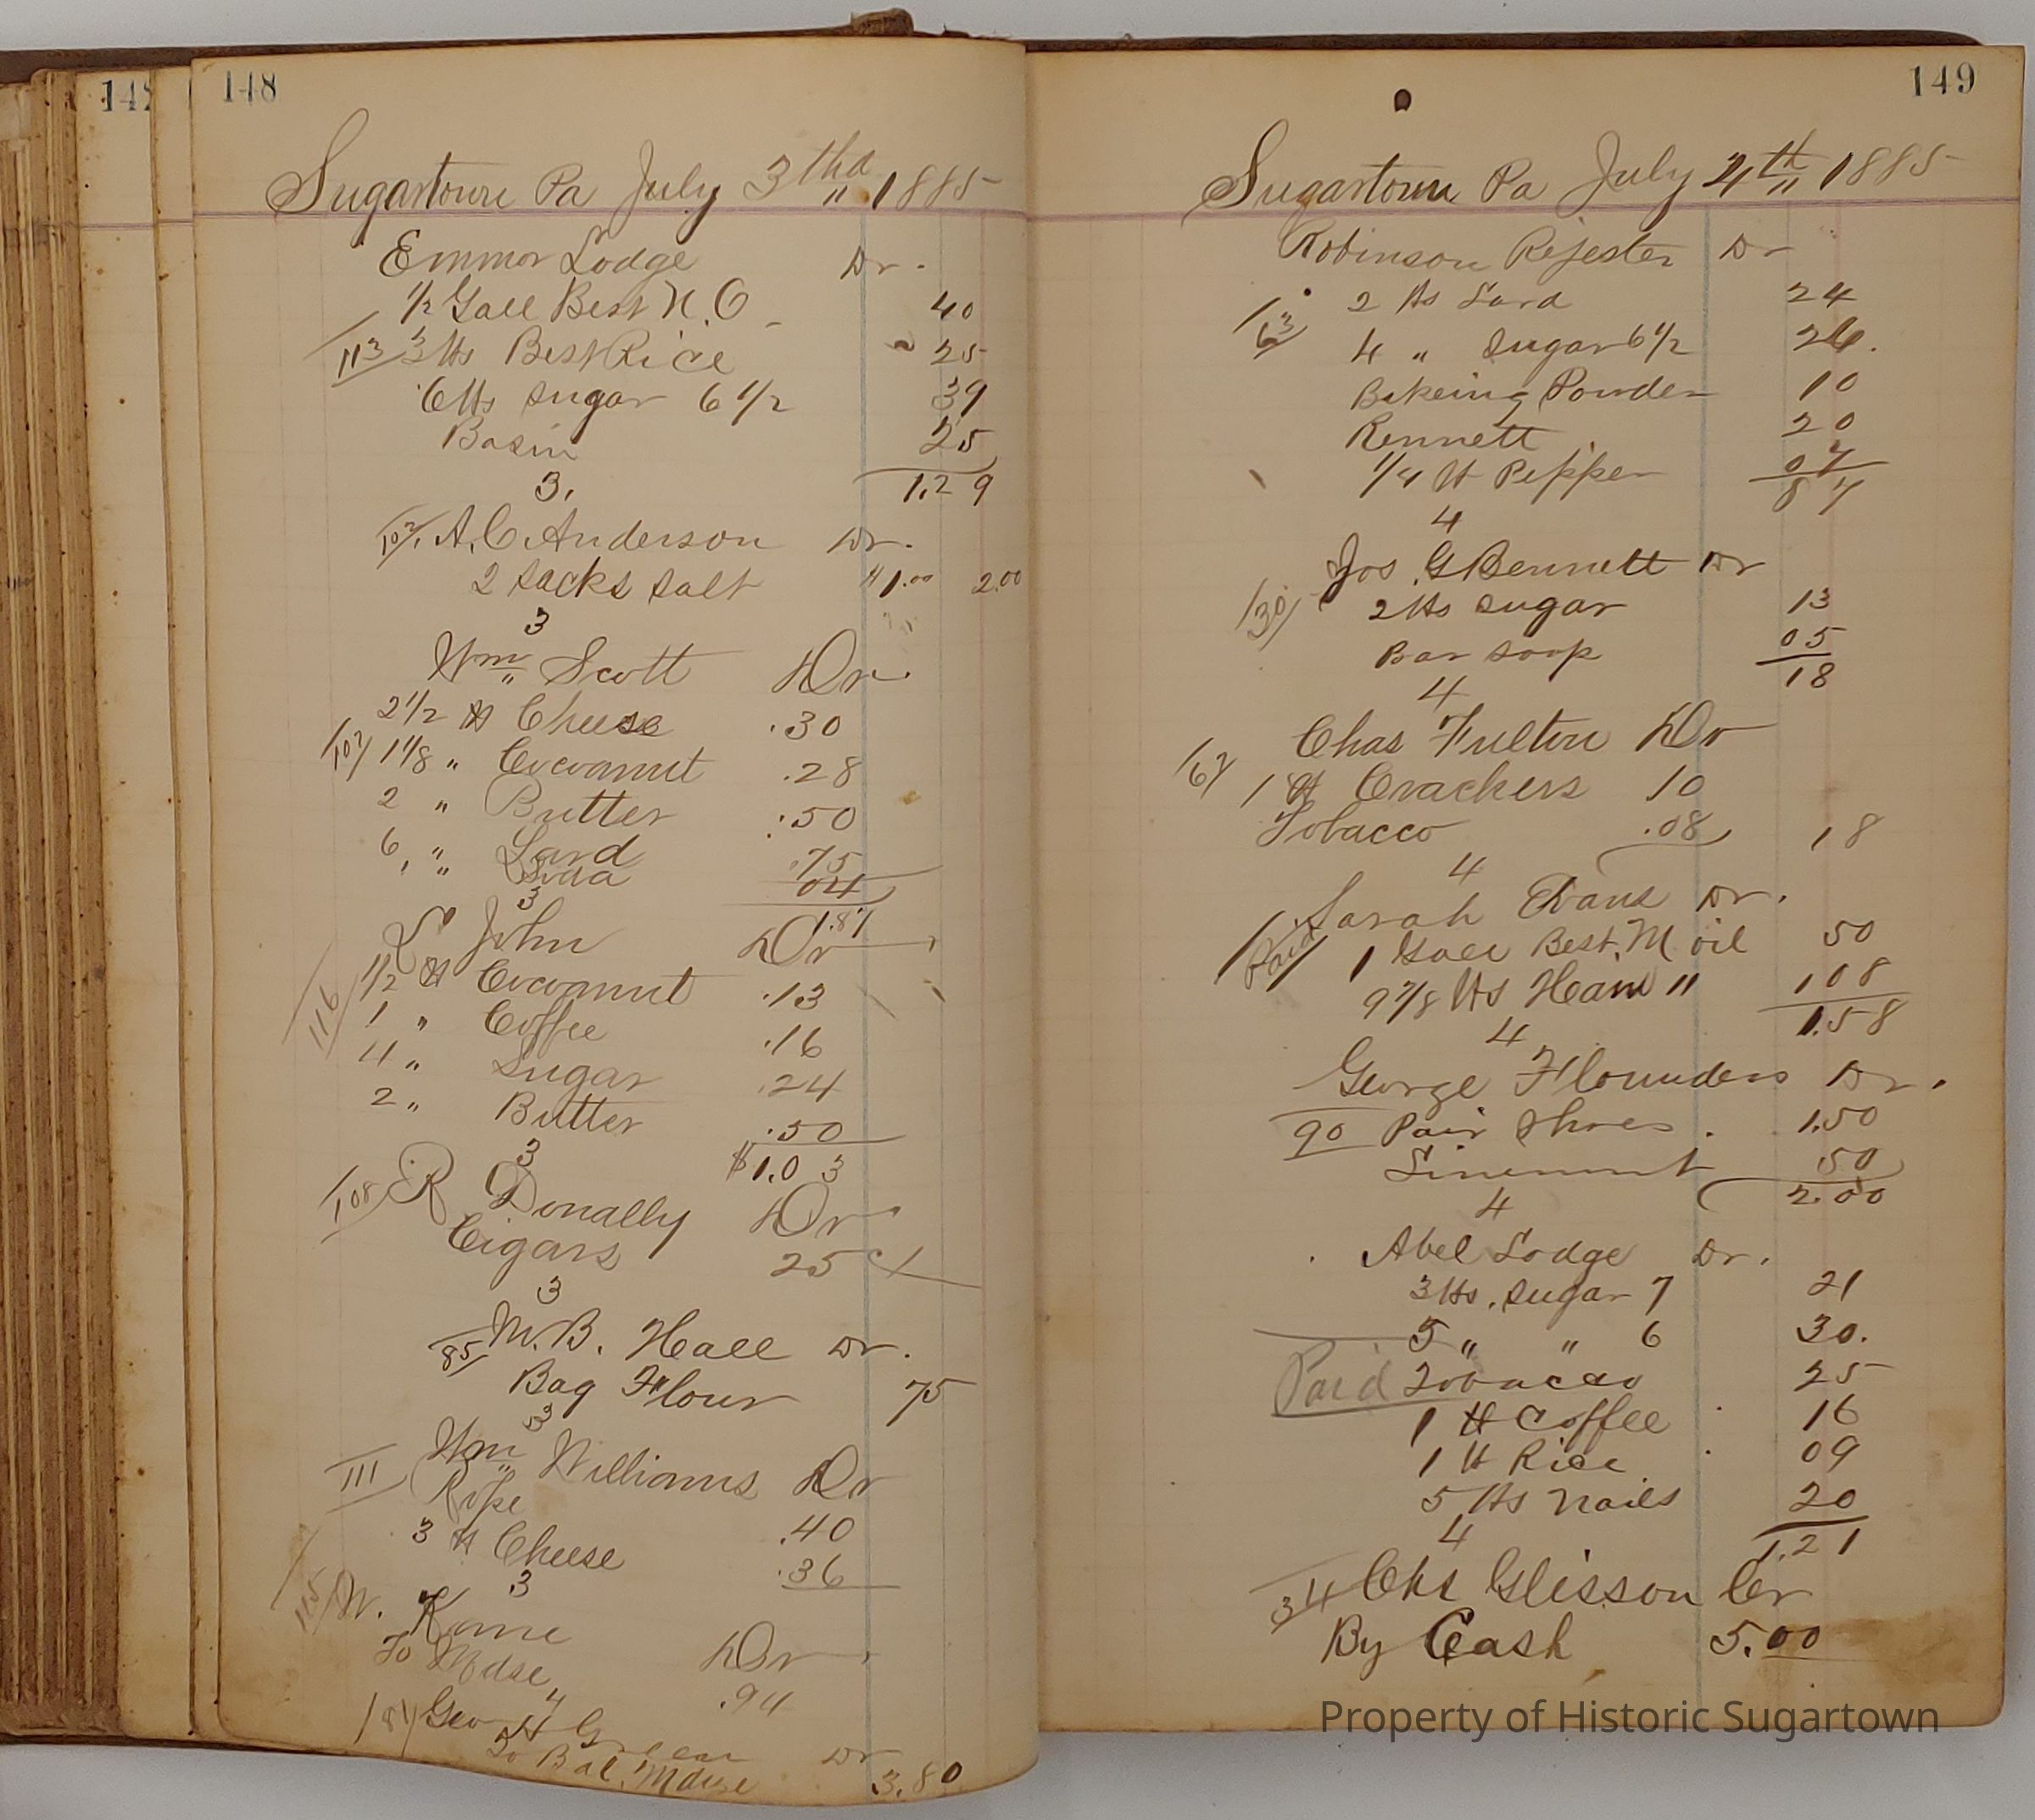 148
Sugartown Pa July 3thd 1885
Emmor Lodge Dr.
1/2 Gall Best N.O 40
113 3 lbs Best Rice 25
6 lbs Sugar 6 1/2 39
Basin 25
3. 1.29
107. A. C. Anderson Dr.
2 sacks salt $1.00 2.00
3
Wm Scott Dr.
2 1/2 lb Cheese .30
107 1 1/8 " Cocoanut .28
2 " Butter .50
6, " Lard .75
Soda 04
3 1.87
John Dr
116 1/2 lb Cocoanut .13
1 " Coffee .16
4 " Sugar .24
2 " Butter .50
3 $1.03
108 R Donally Dr
Cigars 25 ct
3
85 M. B. Hall Dr.
Bag Flour 75
3
111 Wm Williams Dr
Rope .40
3 lb Cheese .36
3
115 W. Kane Dr
To Mdse .94
4
81 Geo H Dr
To Bal. Mdse 3.80
149
Sugartown Pa July 4th 1885
Robinson Rejester Dr
63 2 lbs Lard 24
4 " Sugar 6 1/2 26.
Bakeing Powder 10
Rennett 20
1/4 lb Pepper 07
87
4
Jos. G Bennett Dr
30 2 lbs sugar 13
Bar soap 05
4 18
Chas Fulton Dr
67 1 lb Crackers 10
Tobacco .08 18
4
Sarah Evans Dr.
Paid 1 Gall Best. M oil 50
9 7/8 lbs Ham " 108
4 1.58
George Flounders Dr.
90 Pair Shoes. 1.50
Liniment 50
4 2.00
Abel Lodge Dr.
3 lbs. Sugar 7 21
5 " " 6 30.
Paid Tobacco 25
1 lb Coffee 16
1 lb Rice 09
5 lbs nails 20
4 1.21
34 Chs Glisson Cr
By Cash 5.00
Property of Historic Sugartown